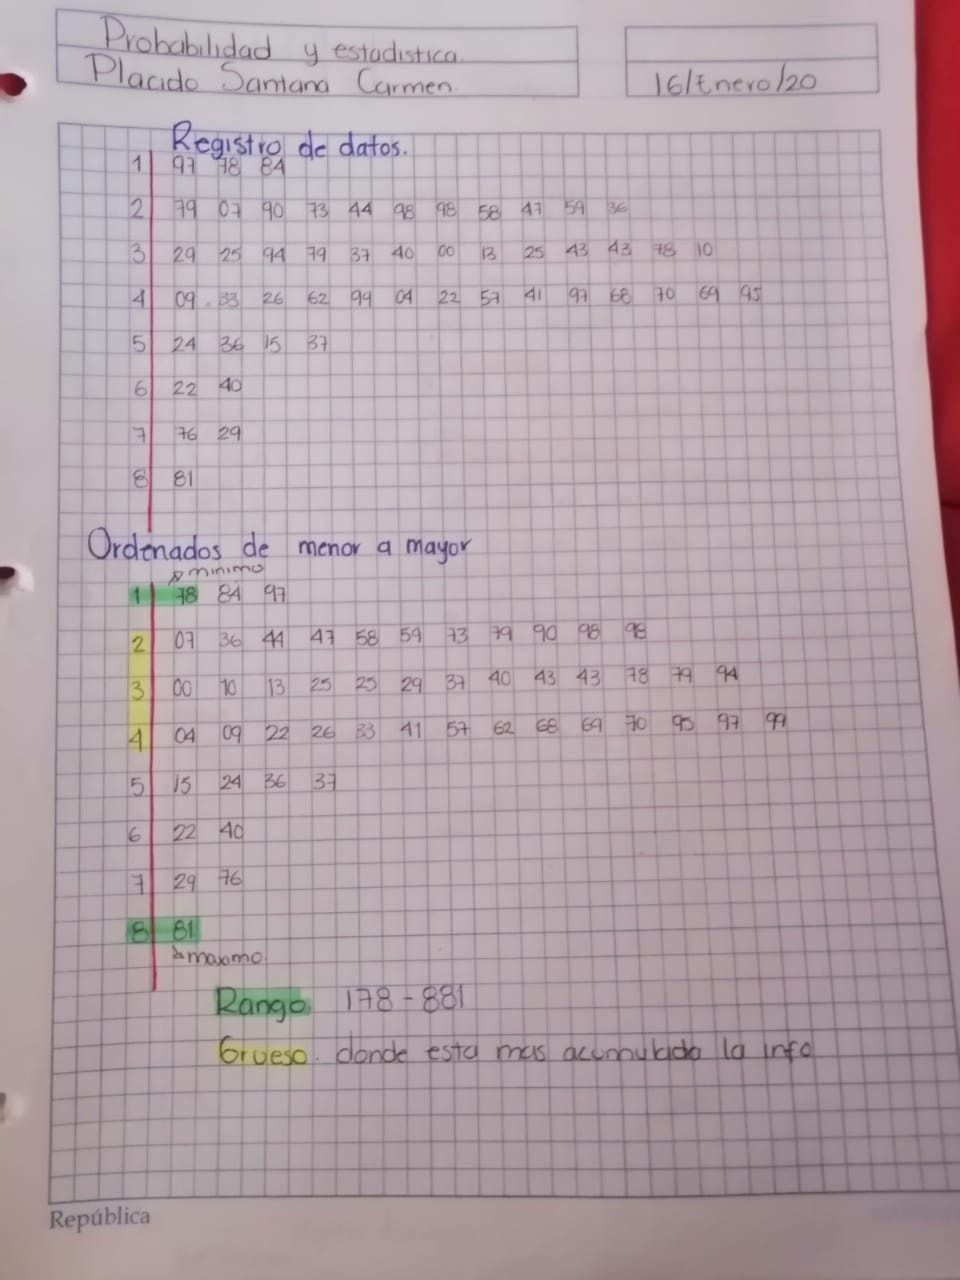 Probabilidad y estadistica.
Placido Santana Carmen.
16/Enero/20
Registro de datos.
1 97 78 84
2 79 07 90 73 44 98 98 58 47 59 36
3 29 25 94 79 37 40 00 13 25 43 43 78 10
4 09 33 26 62 99 04 22 57 41 97 68 70 69 95
5 24 36 15 37
6 22 40
7 76 29
8 81
Ordenados de menor a mayor
minimo
1 78 84 97
2 07 36 44 47 58 59 73 79 90 98 98
3 00 10 13 25 25 29 37 40 43 43 78 79 94
4 04 09 22 26 33 41 57 62 68 69 70 95 97 99
5 15 24 36 37
6 22 40
7 29 76
8 81
maximo.
Rango. 178 - 881
Grueso. donde esta mas acumulada la info
República